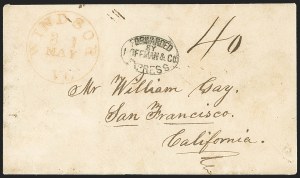 WINDSOR
MAY
40
FORWARDED
BY
EXPRESS
Mr William Gay.
San Francisco.
California.